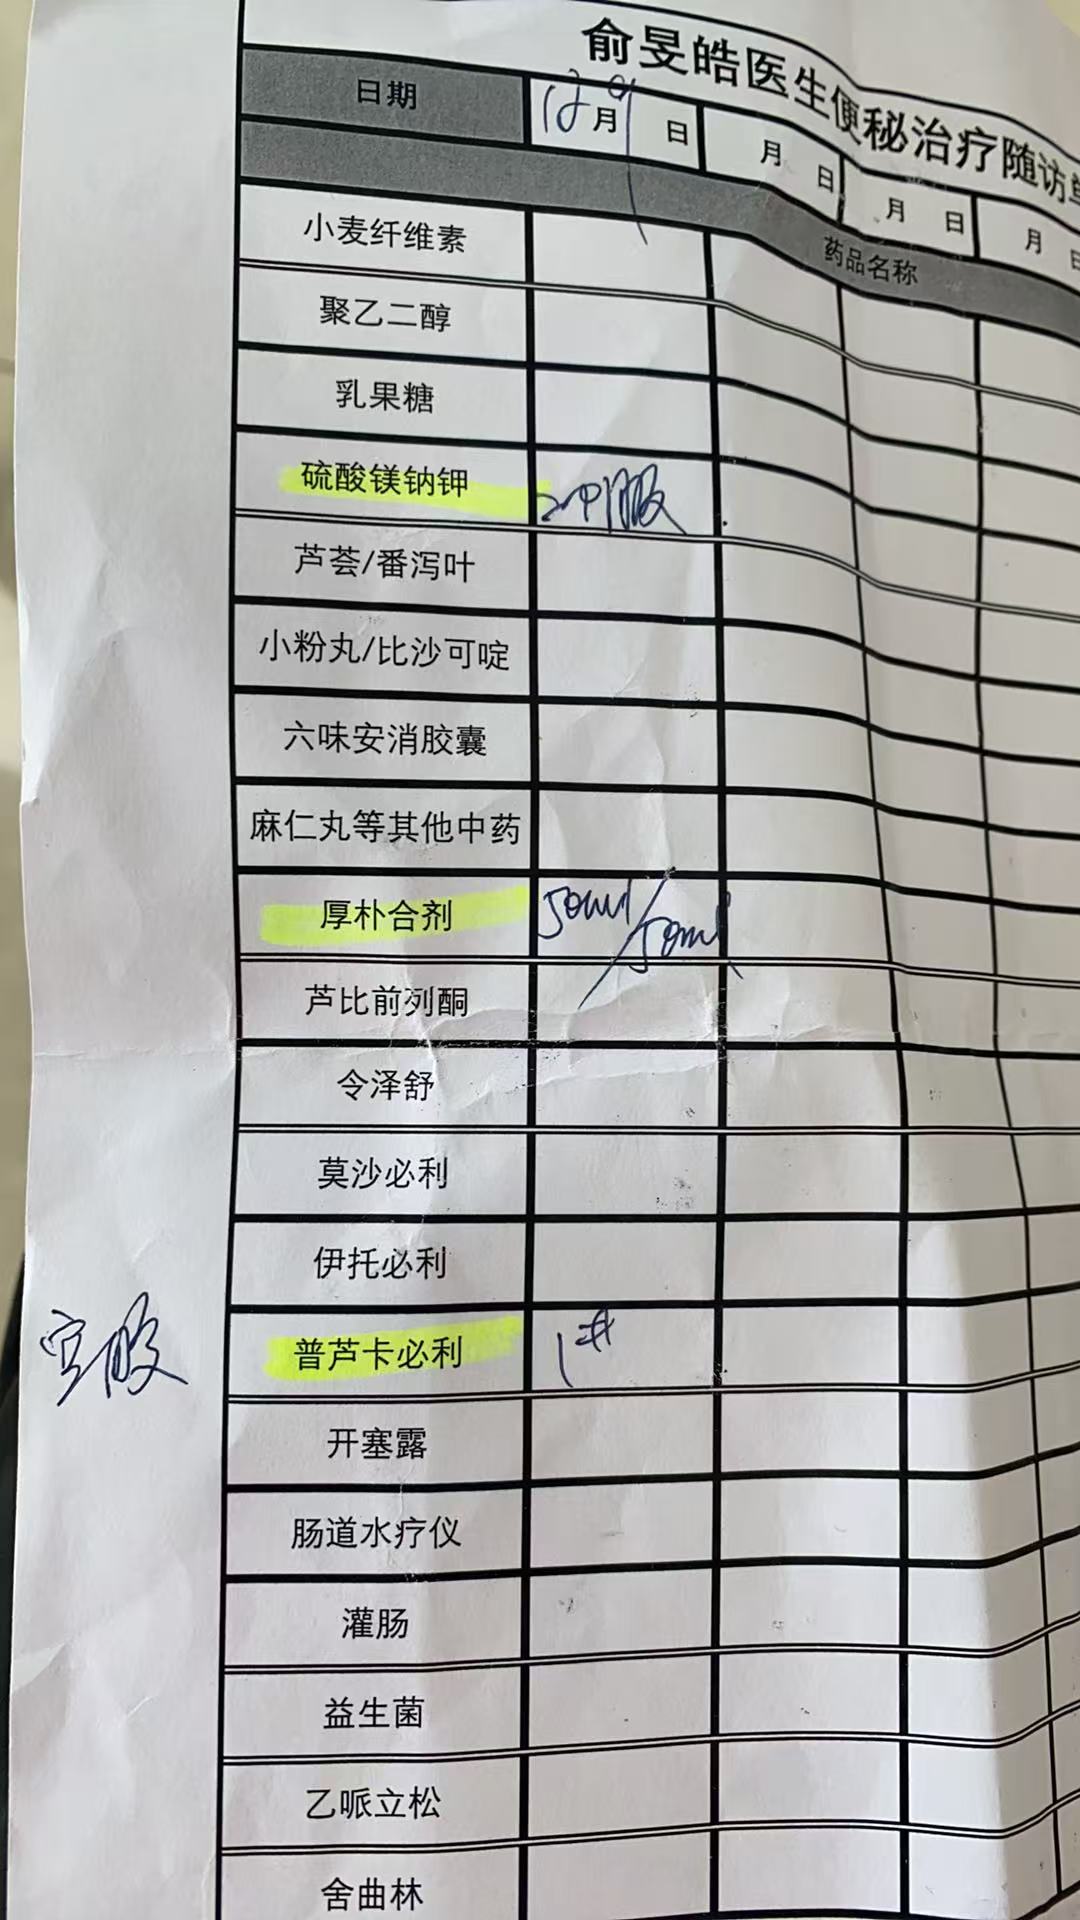 俞旻皓医生便秘治疗随访单
日期 12月9日 月 日 月 日 月 日
药品名称
小麦纤维素
聚乙二醇
乳果糖
硫酸镁钠钾 冲服
芦荟/番泻叶
小粉丸/比沙可啶
六味安消胶囊
麻仁丸等其他中药
厚朴合剂 50ml/50ml
芦比前列酮
令泽舒
莫沙必利
伊托必利
空服 普芦卡必利 1#
开塞露
肠道水疗仪
灌肠
益生菌
乙哌立松
舍曲林